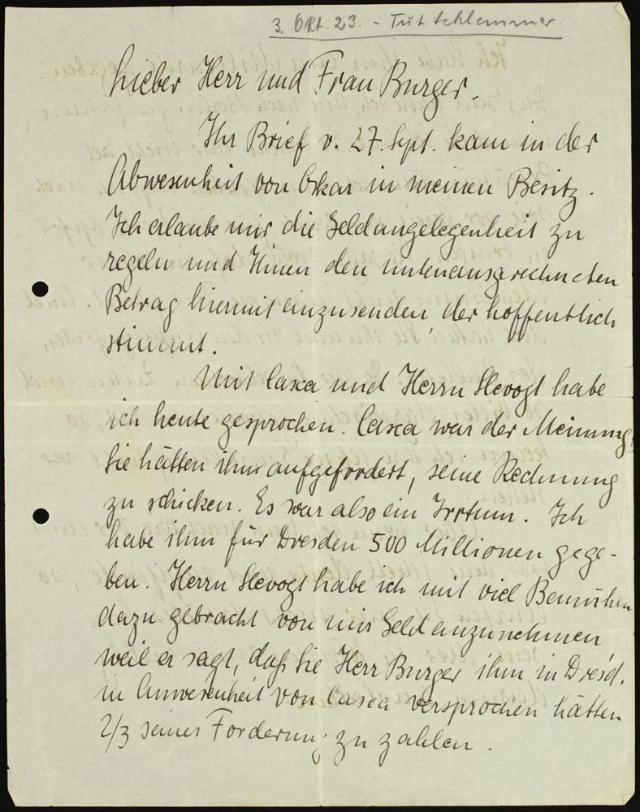 3. Okt. 23. - Tut Schlemmer.
Lieber Herr und Frau Burger.
Ihr Brief v. 27. Sept. kam in der
Abwesenheit von Oskar in meinen Besitz.
Ich erlaube mir die Geldangelegenheit zu
regeln und Ihnen den untenausgerechneten
Betrag hiermit einzusenden, der hoffentlich
stimmt.
Mit Casca und Herrn Slevogt habe
ich heute gesprochen. Casca war der Meinung,
Sie hätten ihn aufgefordert, seine Rechnung
zu schicken. Es war also ein Irrtum. Ich
habe ihm für Dresden 500 Millionen gege-
ben. Herrn Slevogt habe ich mit viel Bemühen
dazu gebracht von mir Geld anzunehmen
weil er sagt, daß Sie Herr Burger ihm in Dresd.
in Anwesenheit von Casca versprochen hätten
2/3 seiner Forderung zu zahlen.